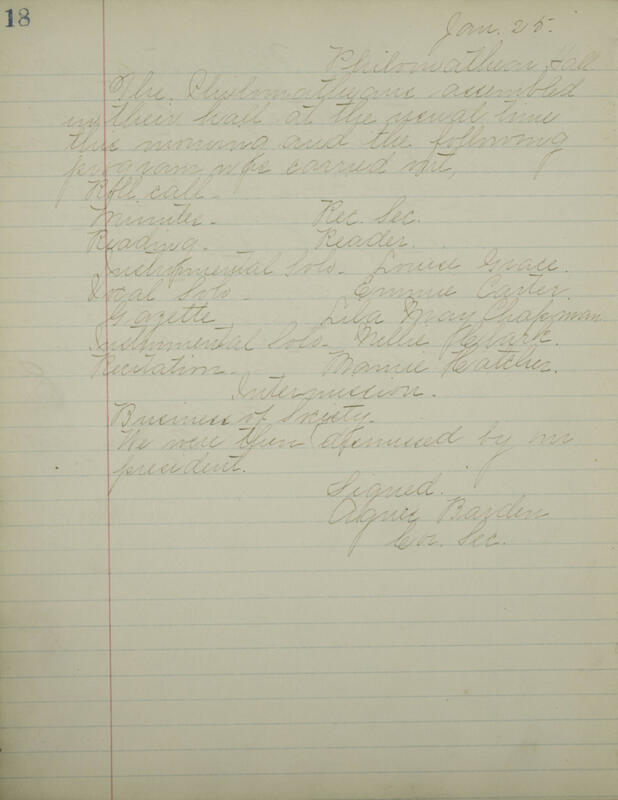 18
Jan. 25.
Philomathean Hall
The Philomatheans assembled
in their hall at the usual time
this morning and the following
program was carried out,
Roll call.
Minutes - Rec. Sec.
Reading. Reader.
Instrumental Solo - Louise Grace.
Vocal Solo - Emmie Carter.
Gazette Lila May Chapman
Instrumental Solo - Nellie
Recitation - Mamie Hatcher.
Intermission.
Business of Society.
We were then dismissed by our
president.
Signed.
Agnes Barden
Cor. Sec.